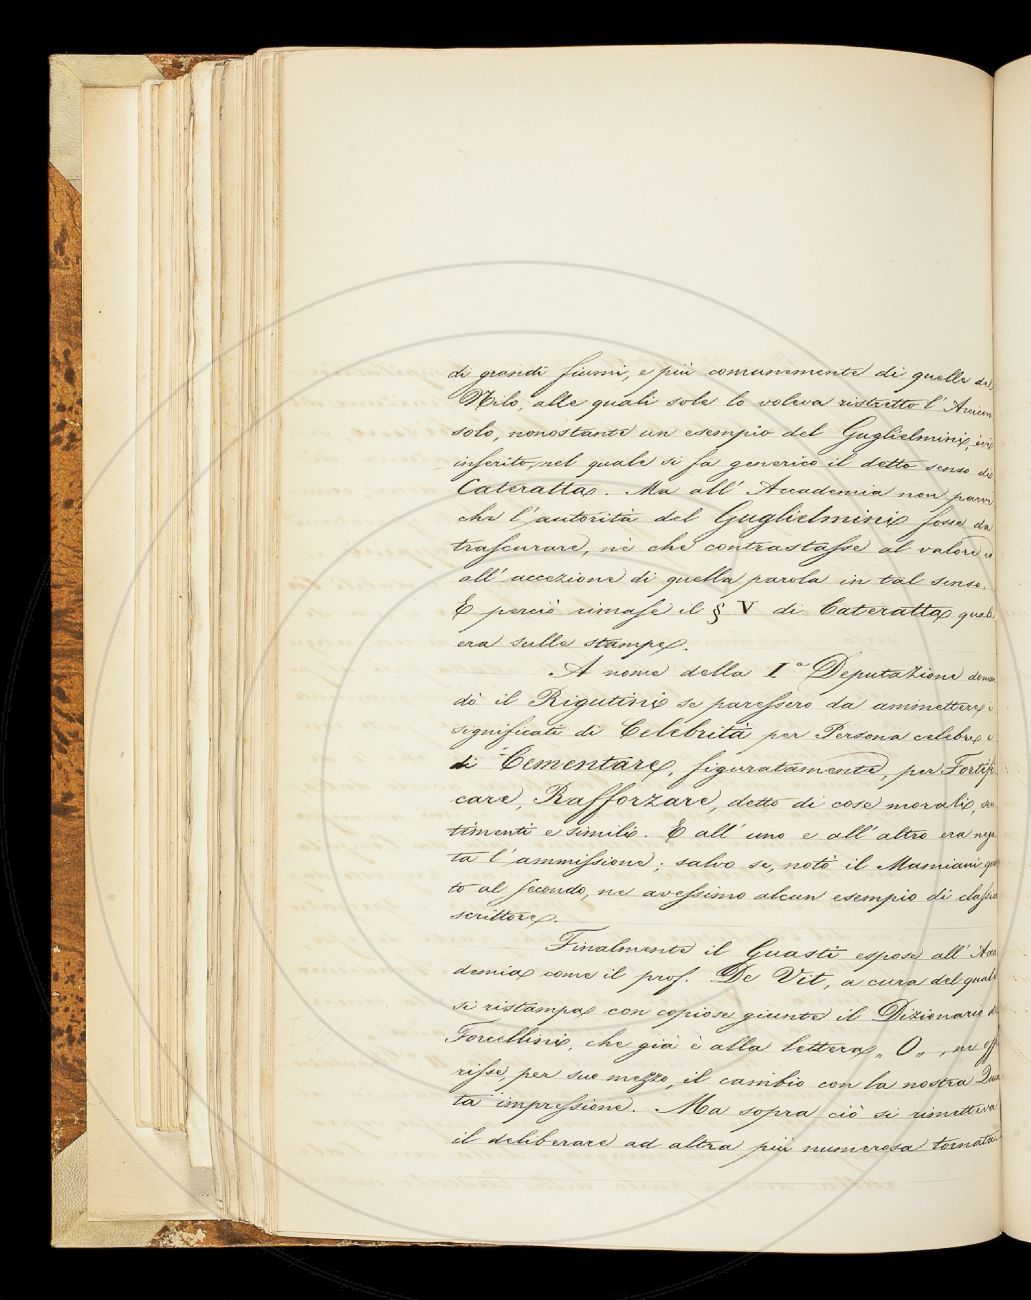 di grandi fiumi, e più comunemente di quelle del
Nilo, alle quali sole lo voleva ristretto l'
solo, nonostante un esempio del Guglielmini, ivi
inserito, nel quale si fa generico il detto senso di
Cateratta. Ma all'Accademia non parve
che l'autorità del Guglielmini fosse da
trascurare, nè che contrastasse al valore e
all'accezione di quella parola in tal senso.
E perciò rimase il § V di Cateratta quale
era sulle stampe.
A nome della Iª Deputazione doman
dò il Rigutini se paressero da ammettere i
significati di Celebrità per Persona celebre e
di Cementare, figuratamente, per Fortifi
care, Rafforzare, detto di cose morali, sen
timenti e simili. E all'uno e all'altro era nega
ta l'ammissione; salvo se, notò il Mamiani quan
to al secondo, ne avessimo alcun esempio di classico
scrittore.
Finalmente il Guasti espose all'Acca
demia come il prof. De Vit, a cura del quale
si ristampa con copiose giunte il Dizionario del
Forcellini, che già è alla lettera „O„, ne off
risse, per suo mezzo, il cambio con la nostra Quin
ta impressione. Ma sopra ciò si rimetteva
il deliberare ad altra più numerosa tornata